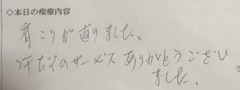 ◇本日の施療内容
肩こりが直りました。
年だのサービスありがとうござい
ました。